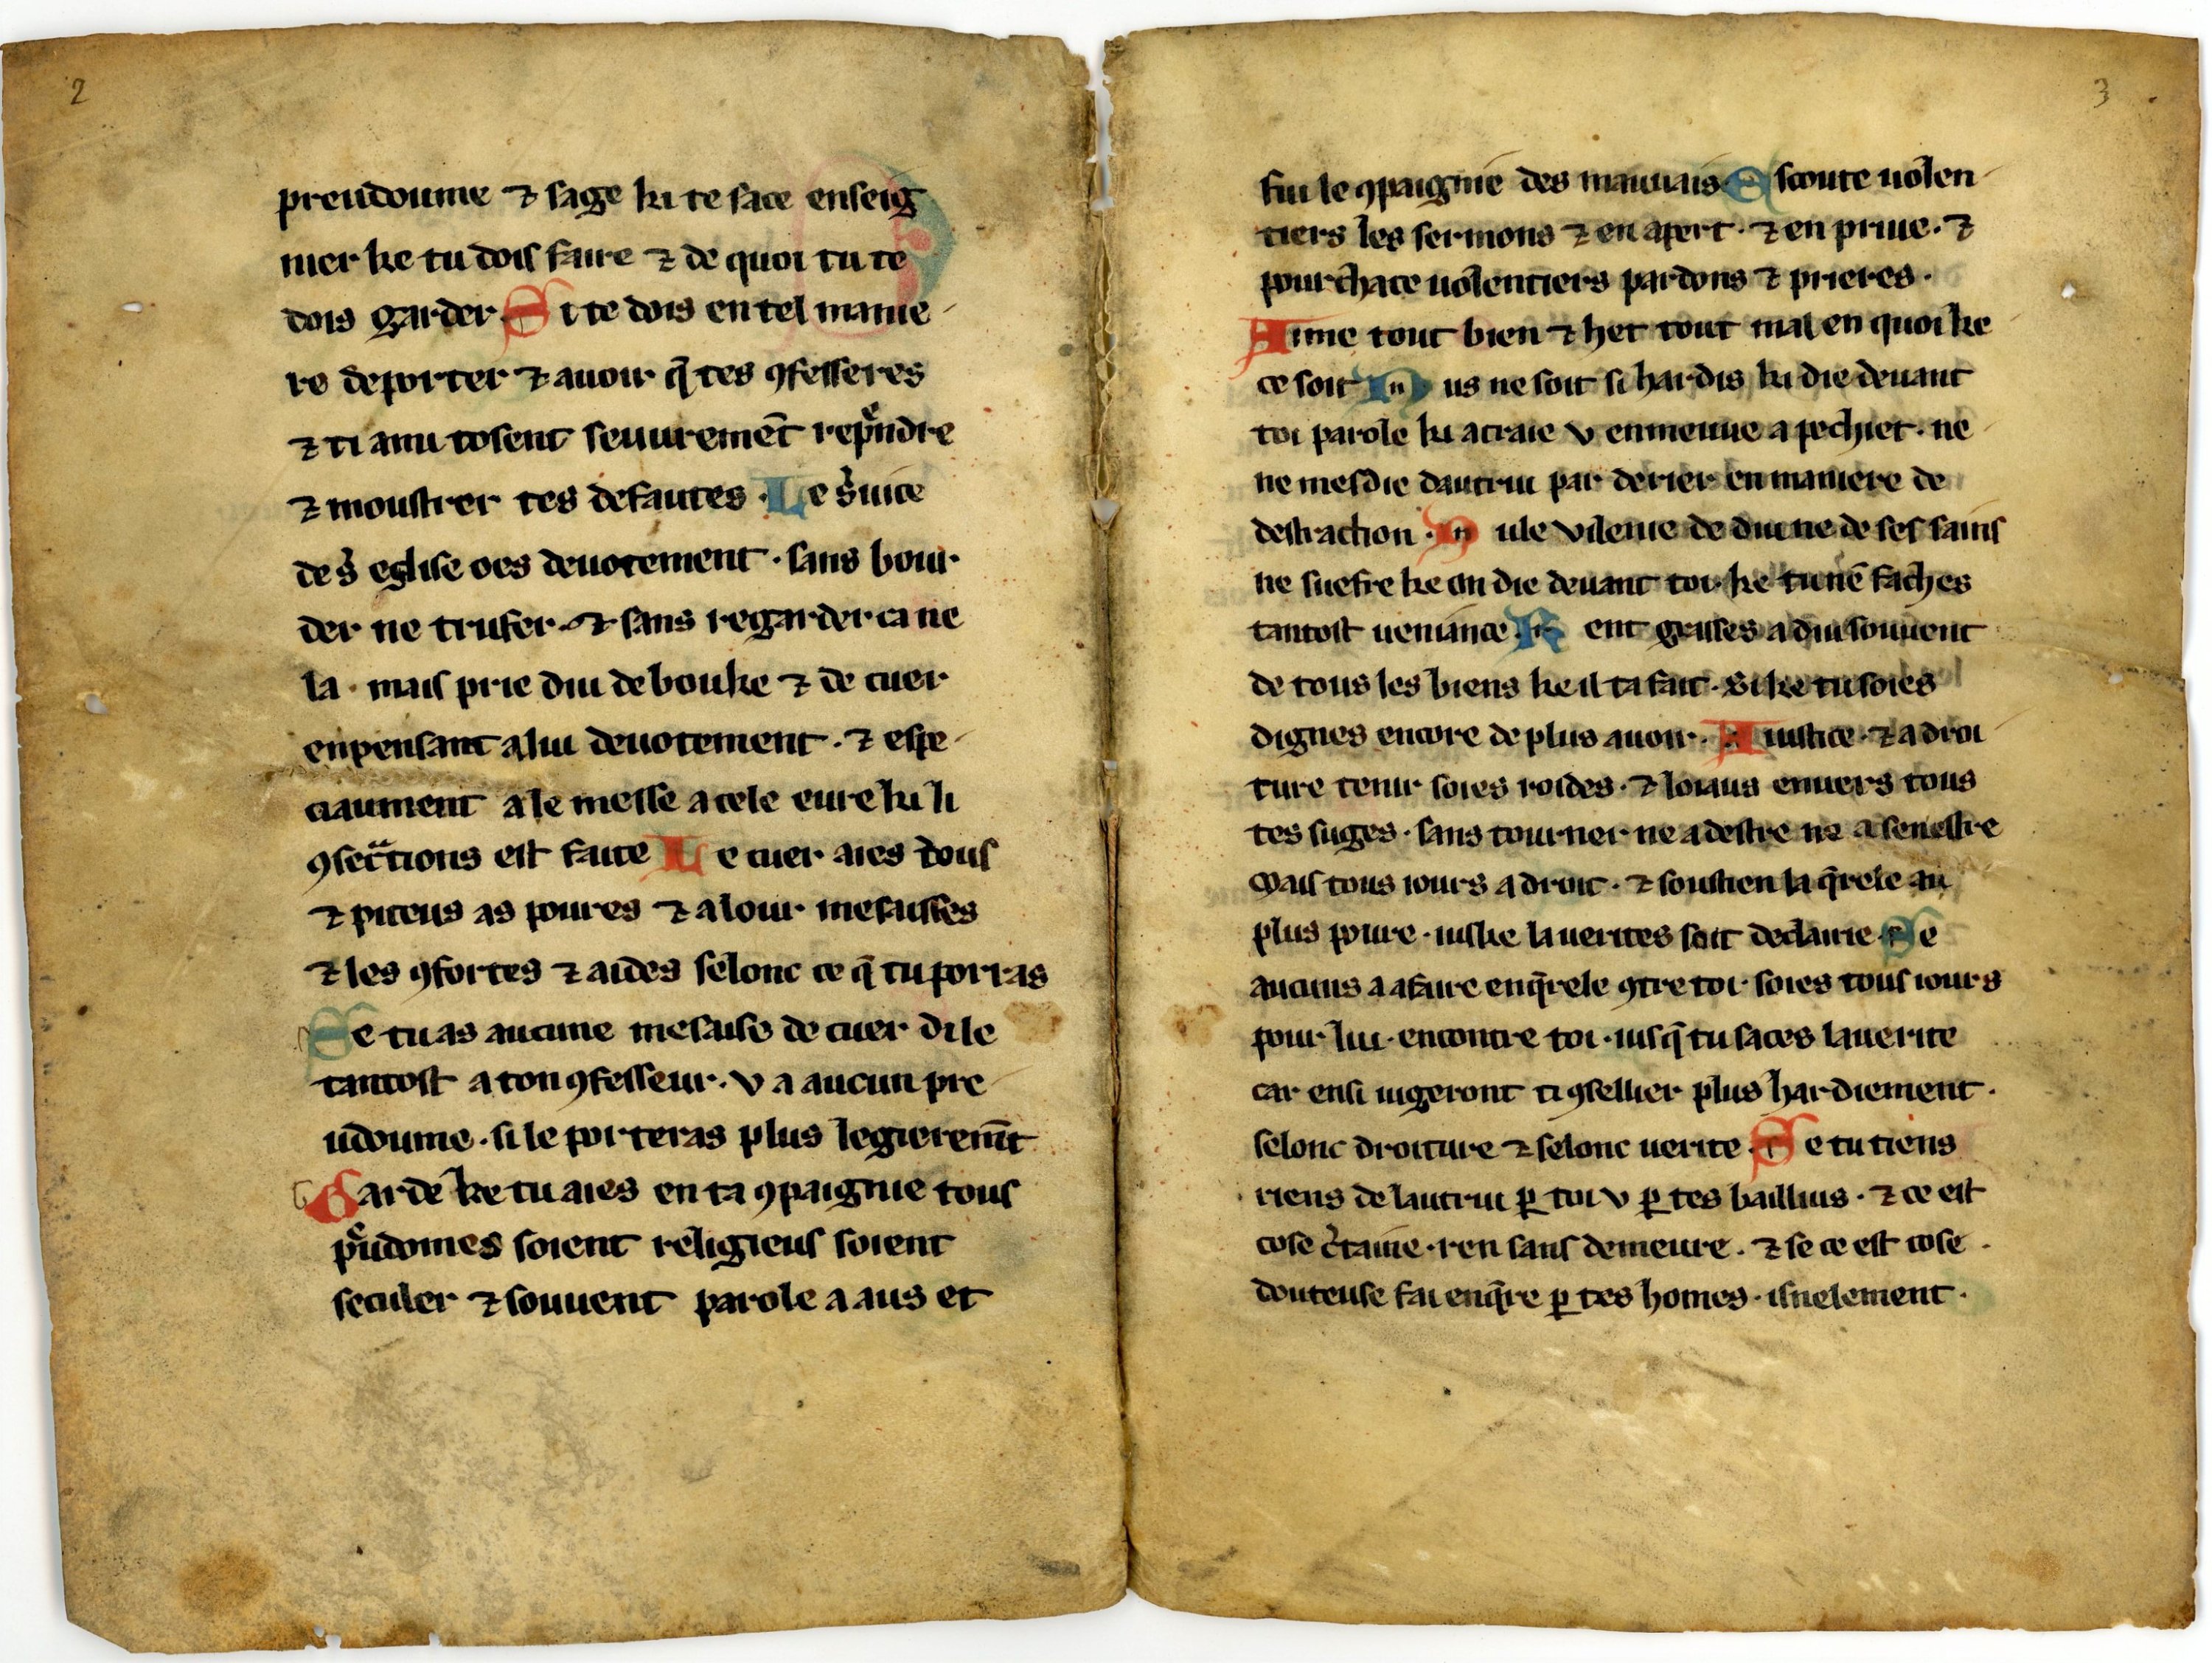 2
preudoume ⁊ sage ki te sace enseig
nier ke tu dois faire ⁊ de quoi tu te
dois garder. Si te dois en tel manie
re deporter ⁊ auoir q̃ tes ꝯfesseres
⁊ ti ami tosent seuuremēt rep̾ndre
⁊ moustrer tes defautes. Le s̾uice
de s̾ eglise oes deuotement. sans bour
der ne trufer. ⁊ sans regarder ca ne
la. mais prie diu de bouke ⁊ de cuer
enpensant a lui deuotement. ⁊ espe
ciaument a le messe a cele eure ki li
ꝯsecr̃tions est faite Le cuer aies dous
⁊ piteus as poures ⁊ a lour mesaisses
⁊ les ꝯfortes ⁊ aides selonc ce q̃ tu porras
Se tu as aucune mesaise de cuer di le
tantost a ton ꝯfesseur. v a aucun pre
udoume. si le porteras plus legieremēt
Garde ke tu aies en ta ꝯpaignie tous
p̾udomes soient religieus soient
seculer ⁊ souuent parole a aus et
3
fui le ꝯpaignie des mauuais Escoute uolen
tiers les sermons ⁊ en apert. ⁊ en priue. ⁊
pourchace uolentiers pardons ⁊ prieres.
Aime tout bien ⁊ het tout mal en quoi ke
ce soit Nus ne soit si hardis ki die deuant
toi parole ki atraie v enmeuue a pechiet. ne
ne mesdie dautrui par derier en maniere de
destraction. Nule vilenie de diu ne de ses sains
ne suefre ke on die deuant toi. ke tu nē faches
tantost ueniance. Rent grasses a diu souuent
de tous les biens ke il ta fait. Si ke tu soies
dignes encore de plus auoir. A iustice. ⁊ a droi
ture tenir soies roides. ⁊ loiaus enuers tous
tes suges. sans tourner ne a destre ne a senestre
Mais tous iours a droit. ⁊ soustien la q̃rele au
plus poure. iuske la uerites soit declairie. Se
aucuns a afaire en q̃rele ꝯtre toi. soies tous iours
pour lui. encontre toi. iusq̃ tu saces la uerite
car ensi iugeront ti ꝯsellier plus hardiement.
selonc droiture ⁊ selonc uerite. Se tu tiens
riens de lautrui ꝑ toi v ꝑ tes baillius. ⁊ ce est
cose c̾taine. ren sans demeure. ⁊ se ce est cose.
douteuse fai enq̃re ꝑ tes homes. isnelement.